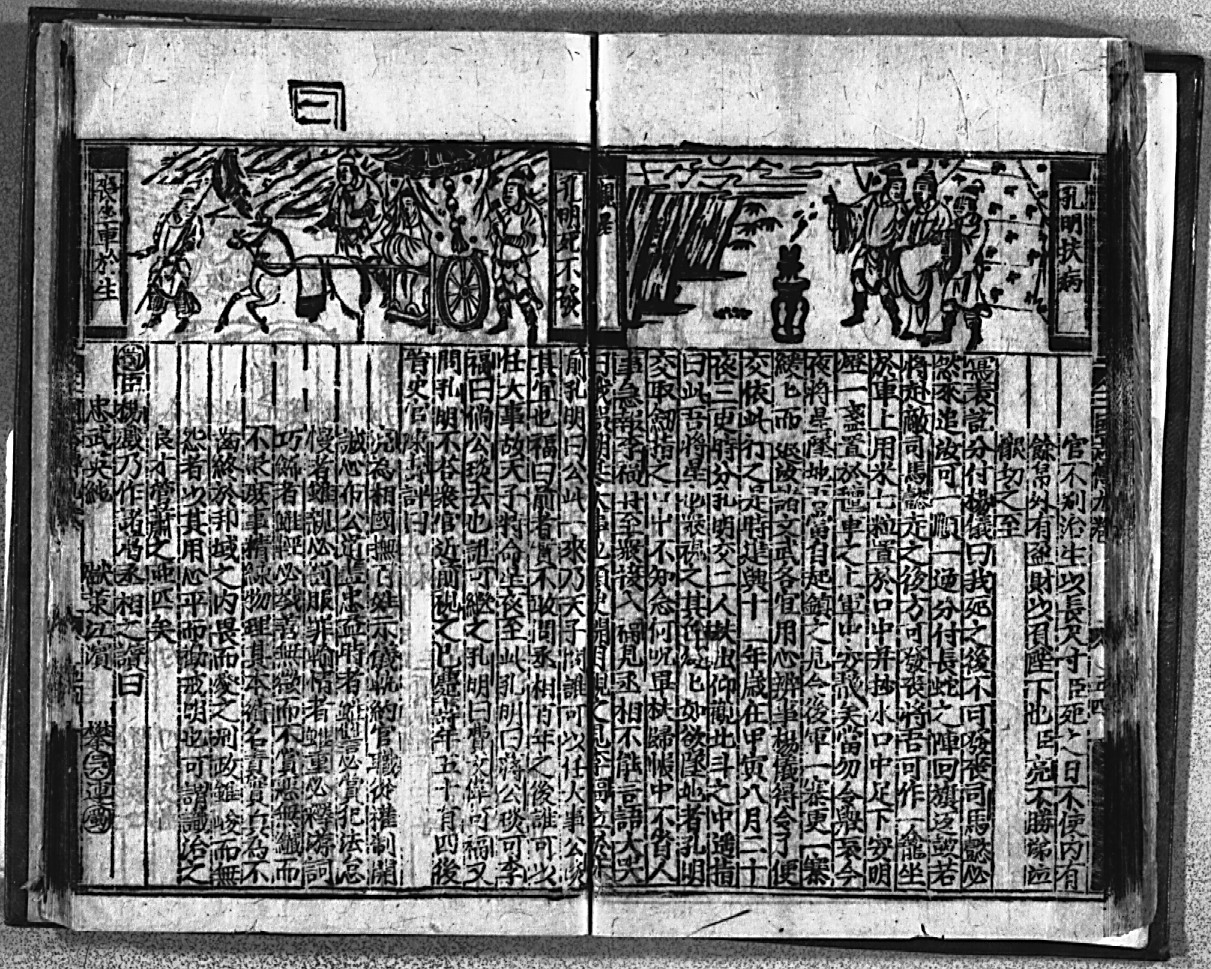 孔明扶病
觀星
官不别治生以長尺寸臣死之日不使内有
餘帛外有盈財以負陛下也臣亮不勝
懇切之至
分付楊儀曰我死之後不可發喪司馬懿必
然來追汝可一順一逓分付長蛇之陣回旗返皷若
將赴敵司馬懿走之後方可發喪將吾可作一龕坐
於車上用米七粒置於口中并抄水口中足下安明
燈一盞置於車之上軍中安靜天當勿令舉哀今
夜將星墜地吾當自起鎮之見令後軍一寨更一寨
緩而文武各官用心辦事楊儀得令了便
交依此行之是時建興十一年歲在甲寅八月二十
夜三更時分孔明交二人扶出仰觀北斗之中遥指
曰此吾將星也其如欲墜也者孔明
交取劒指之口中不知念何呪畢扶歸帳中不省人
事急報李福付至衆接入福見丞相不能言語大哭
孔明死不發
喪生車於生
前孔明曰公此一來乃天子問誰可以任大事公琰
其宜也福曰前者實不敢問丞相百年之後誰可以
任大事故天子特命星夜至此孔明曰蔣公琰可李
福曰倘公琰去也誰可繼之孔明曰費文偉可福又
問孔明不答衆官近前視之已薨壽年五十有四後
晉史官陳壽評曰
亮為相國撫百姓示儀軌約官職從權制開
誠心布公道盡忠益時者雖讐必賞犯法怠
慢者雖親必罰服罪輸情者雖重必釋游詞
巧飾者雖輕必戮善無微而不賞惡無纖而
不貶庶事精練物理其本循名責實虛偽不
齒終於邦域之内畏而愛之刑政雖峻而無
怨者以其用心平而勸戒明也可謂識治之
良才管蕭之亞匹矣
臣楊戲乃作諸葛丞相之讃曰
忠武英純　獻策江濱　攀吳連蜀